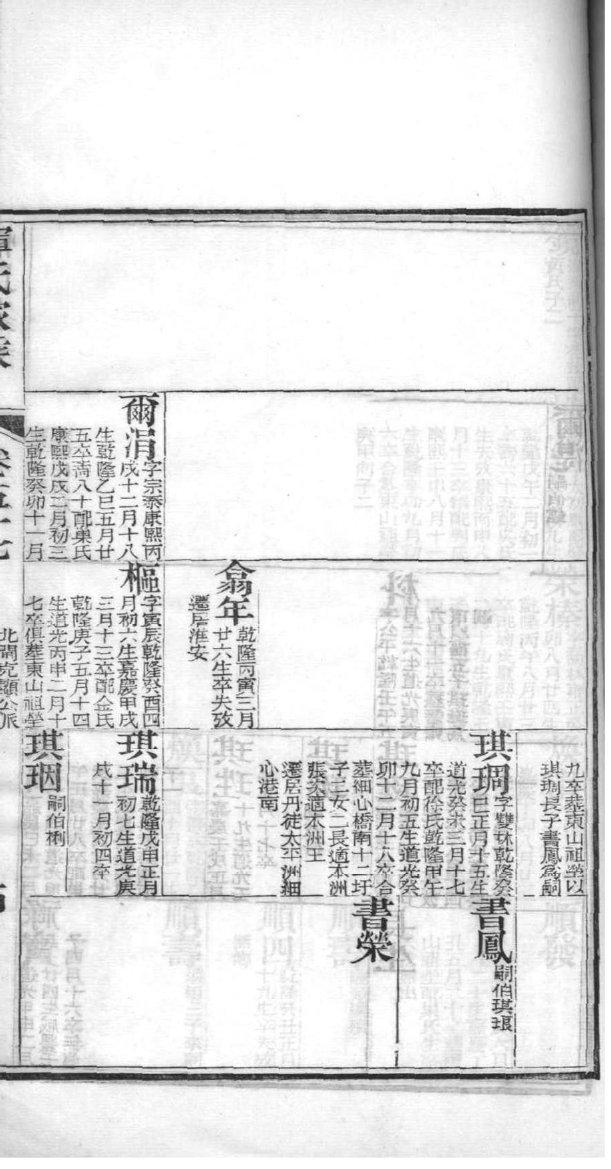 爾涓
字宗泰康熙丙
戌十二月十八
生乾隆乙巳五月廿
五卒壽八十配巢氏
康熙戊戌二月初三
生乾隆癸卯十一月
翕年
乾隆丙寅三月
廿六生卒失攷
遷居淮安
樞
字寅辰乾隆癸酉四
月初六生嘉慶甲戌
三月十三卒配金氏
乾隆庚子五月十四
生道光丙申二月十
七卒俱葬東山祖塋
九卒葬東山祖塋以
琪琱長子書鳳爲嗣
琪琱
字雙林乾隆癸
巳正月十五生
道光癸未三月十七
卒配徐氏乾隆甲午
九月初五生道光癸
卯十二月十六卒合
葬細心橋南十二圩
子二女二長適本洲
張次適本洲王
遷居丹徒太平洲細
心港南
琪瑞
乾隆戊申正月
初七生道光庚
戌十一月初四卒
琪珚
嗣伯
書鳳
嗣伯琪
書榮
北門克顯公派